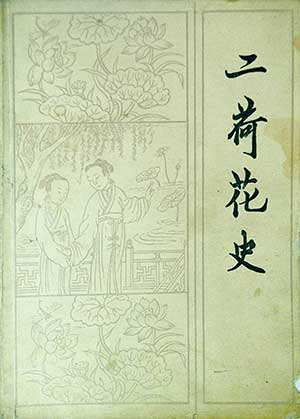 二荷花史